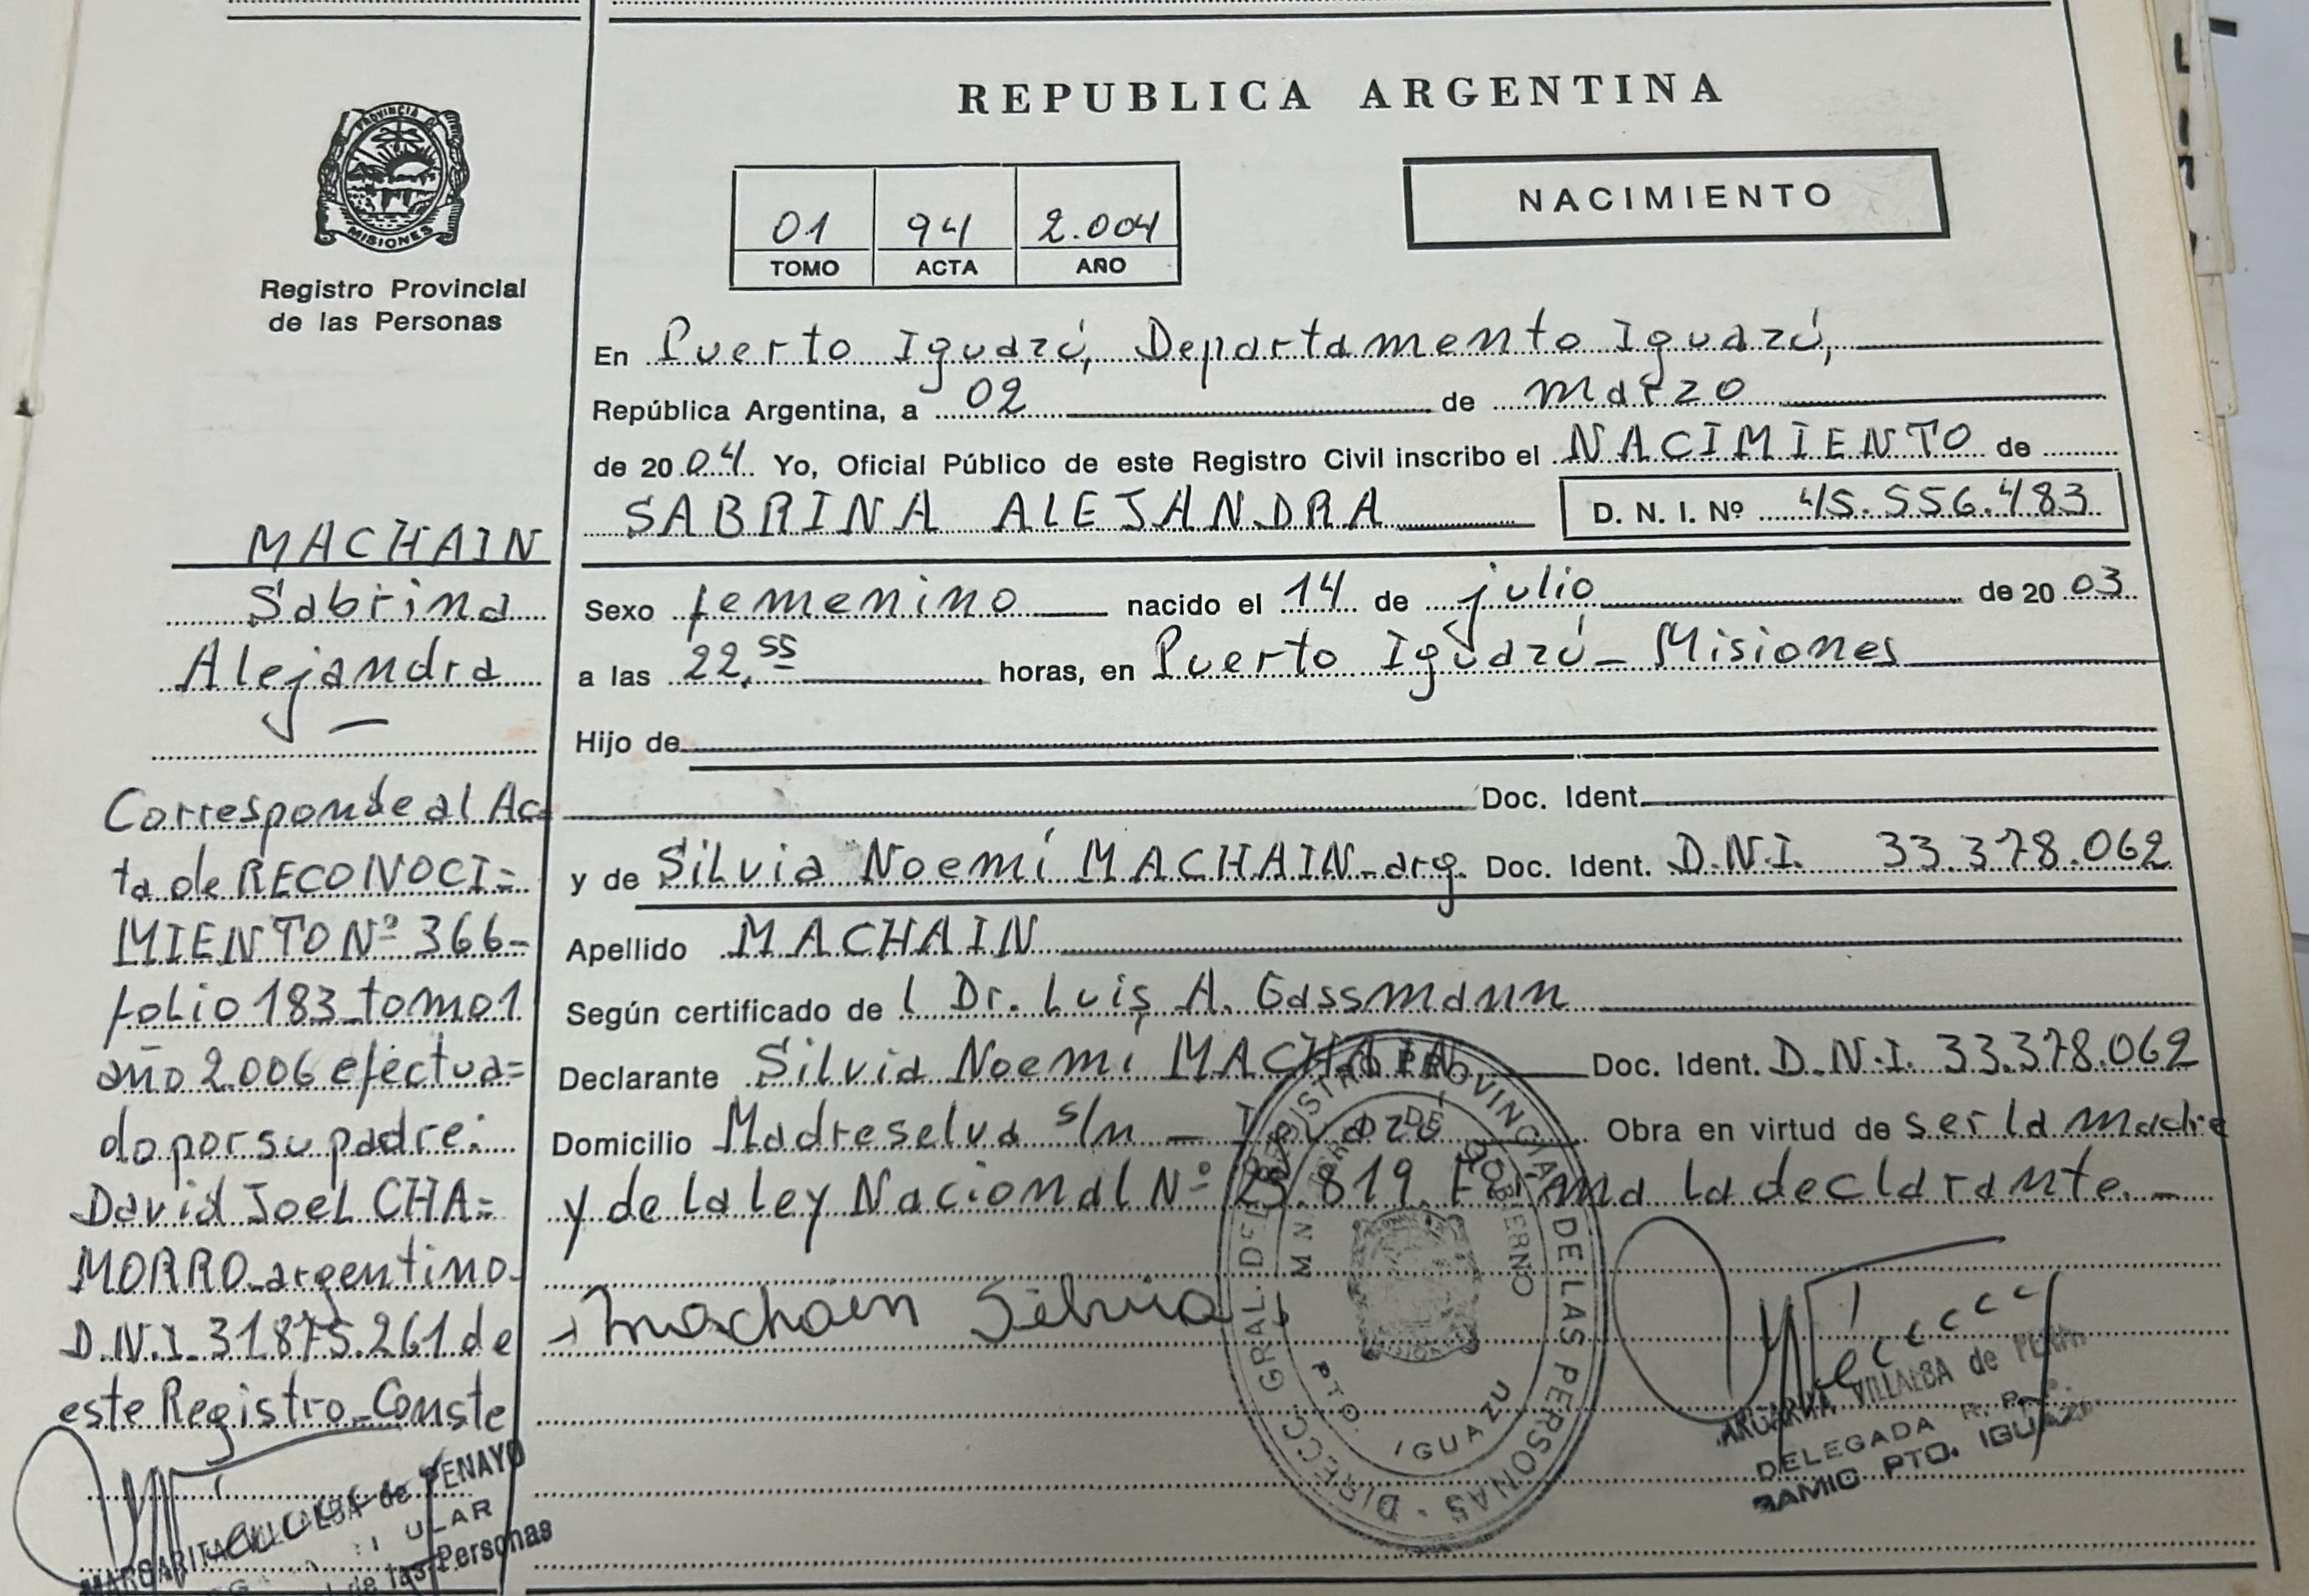 PROVINCIA D
MISIONES
Registro Provincial
de las Personas
MACHAIN
Sabrina
Alejandra
Corresponde al Ac=
ta de RECONOCI=
MIENTO Nº 366-
folio 183 tomo 1
año 2.006 efectua=
do por su padre:
David Joel CHA=
MORRO argentino-
D.N.I. 31875.261 de
este Registro-Conste
MARGARITA VILLALBA de PENAYO
ULAR
de las Personas
REPUBLICA ARGENTINA
01 94 2.004
TOMO ACTA AÑO
NACIMIENTO
En Puerto Iguazú, Departamento Iguazú,
República Argentina, a 02 de marzo
de 2004 Yo, Oficial Público de este Registro Civil inscribo el NACIMIENTO de
SABRINA ALEJANDRA D. N. I. Nº 45.556.483
Sexo femenino nacido el 14 de julio de 20 03
a las 22,55 horas, en Puerto Iguazú - Misiones
Hijo de
Doc. Ident.
y de Silvia Noemí MACHAIN-arg. Doc. Ident. D.N.I. 33.378.062
Apellido MACHAIN
Según certificado de l Dr. Luis A. Gassmann
Declarante Silvia Noemí MACHAIN Doc. Ident. D.N.I. 33.378.062
Domicilio Madreselva s/n - Iguazú Obra en virtud de ser la madre
y de la ley Nacional Nº 25.819. Firma la declarante. -
Machain Silvia
DIRECC. GRAL. DE REGISTRO PROVINCIAL DE LAS PERSONAS
DE GOBIERNO
PTO. IGUAZU
VILLALBA de
DELEGADA R. P.
PTO. IGUAZU